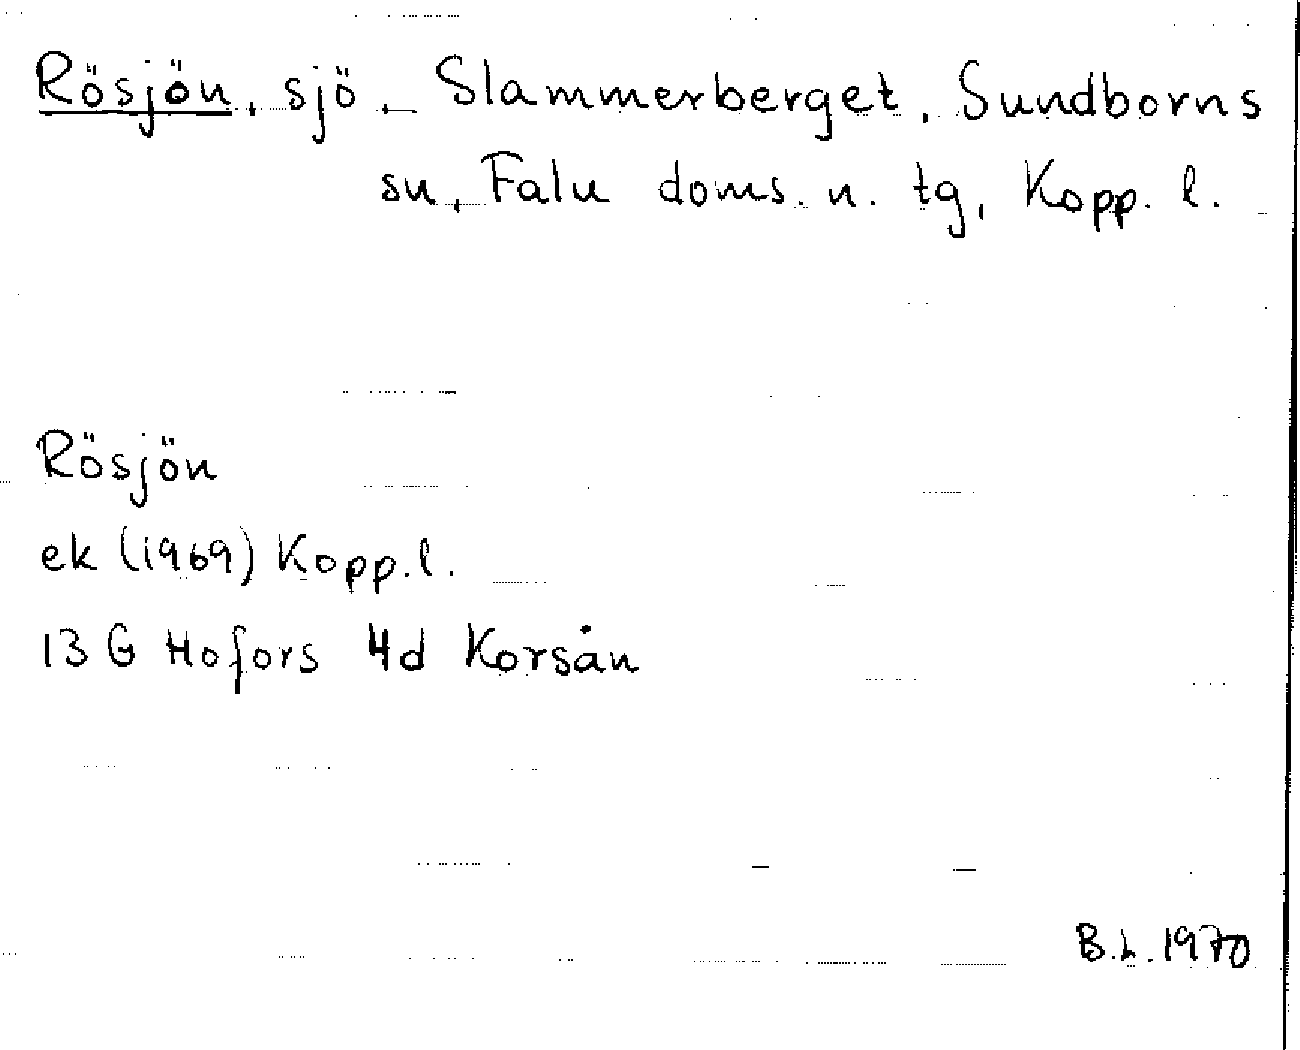 Rösjön, sjö, Slammerberget, Sundborns
sn, Falu doms. n. tg, Kopp. l.
Rösjön
ek (1969) Kopp.l.
13 G Hofors 4d Korsån
B.L. 1970